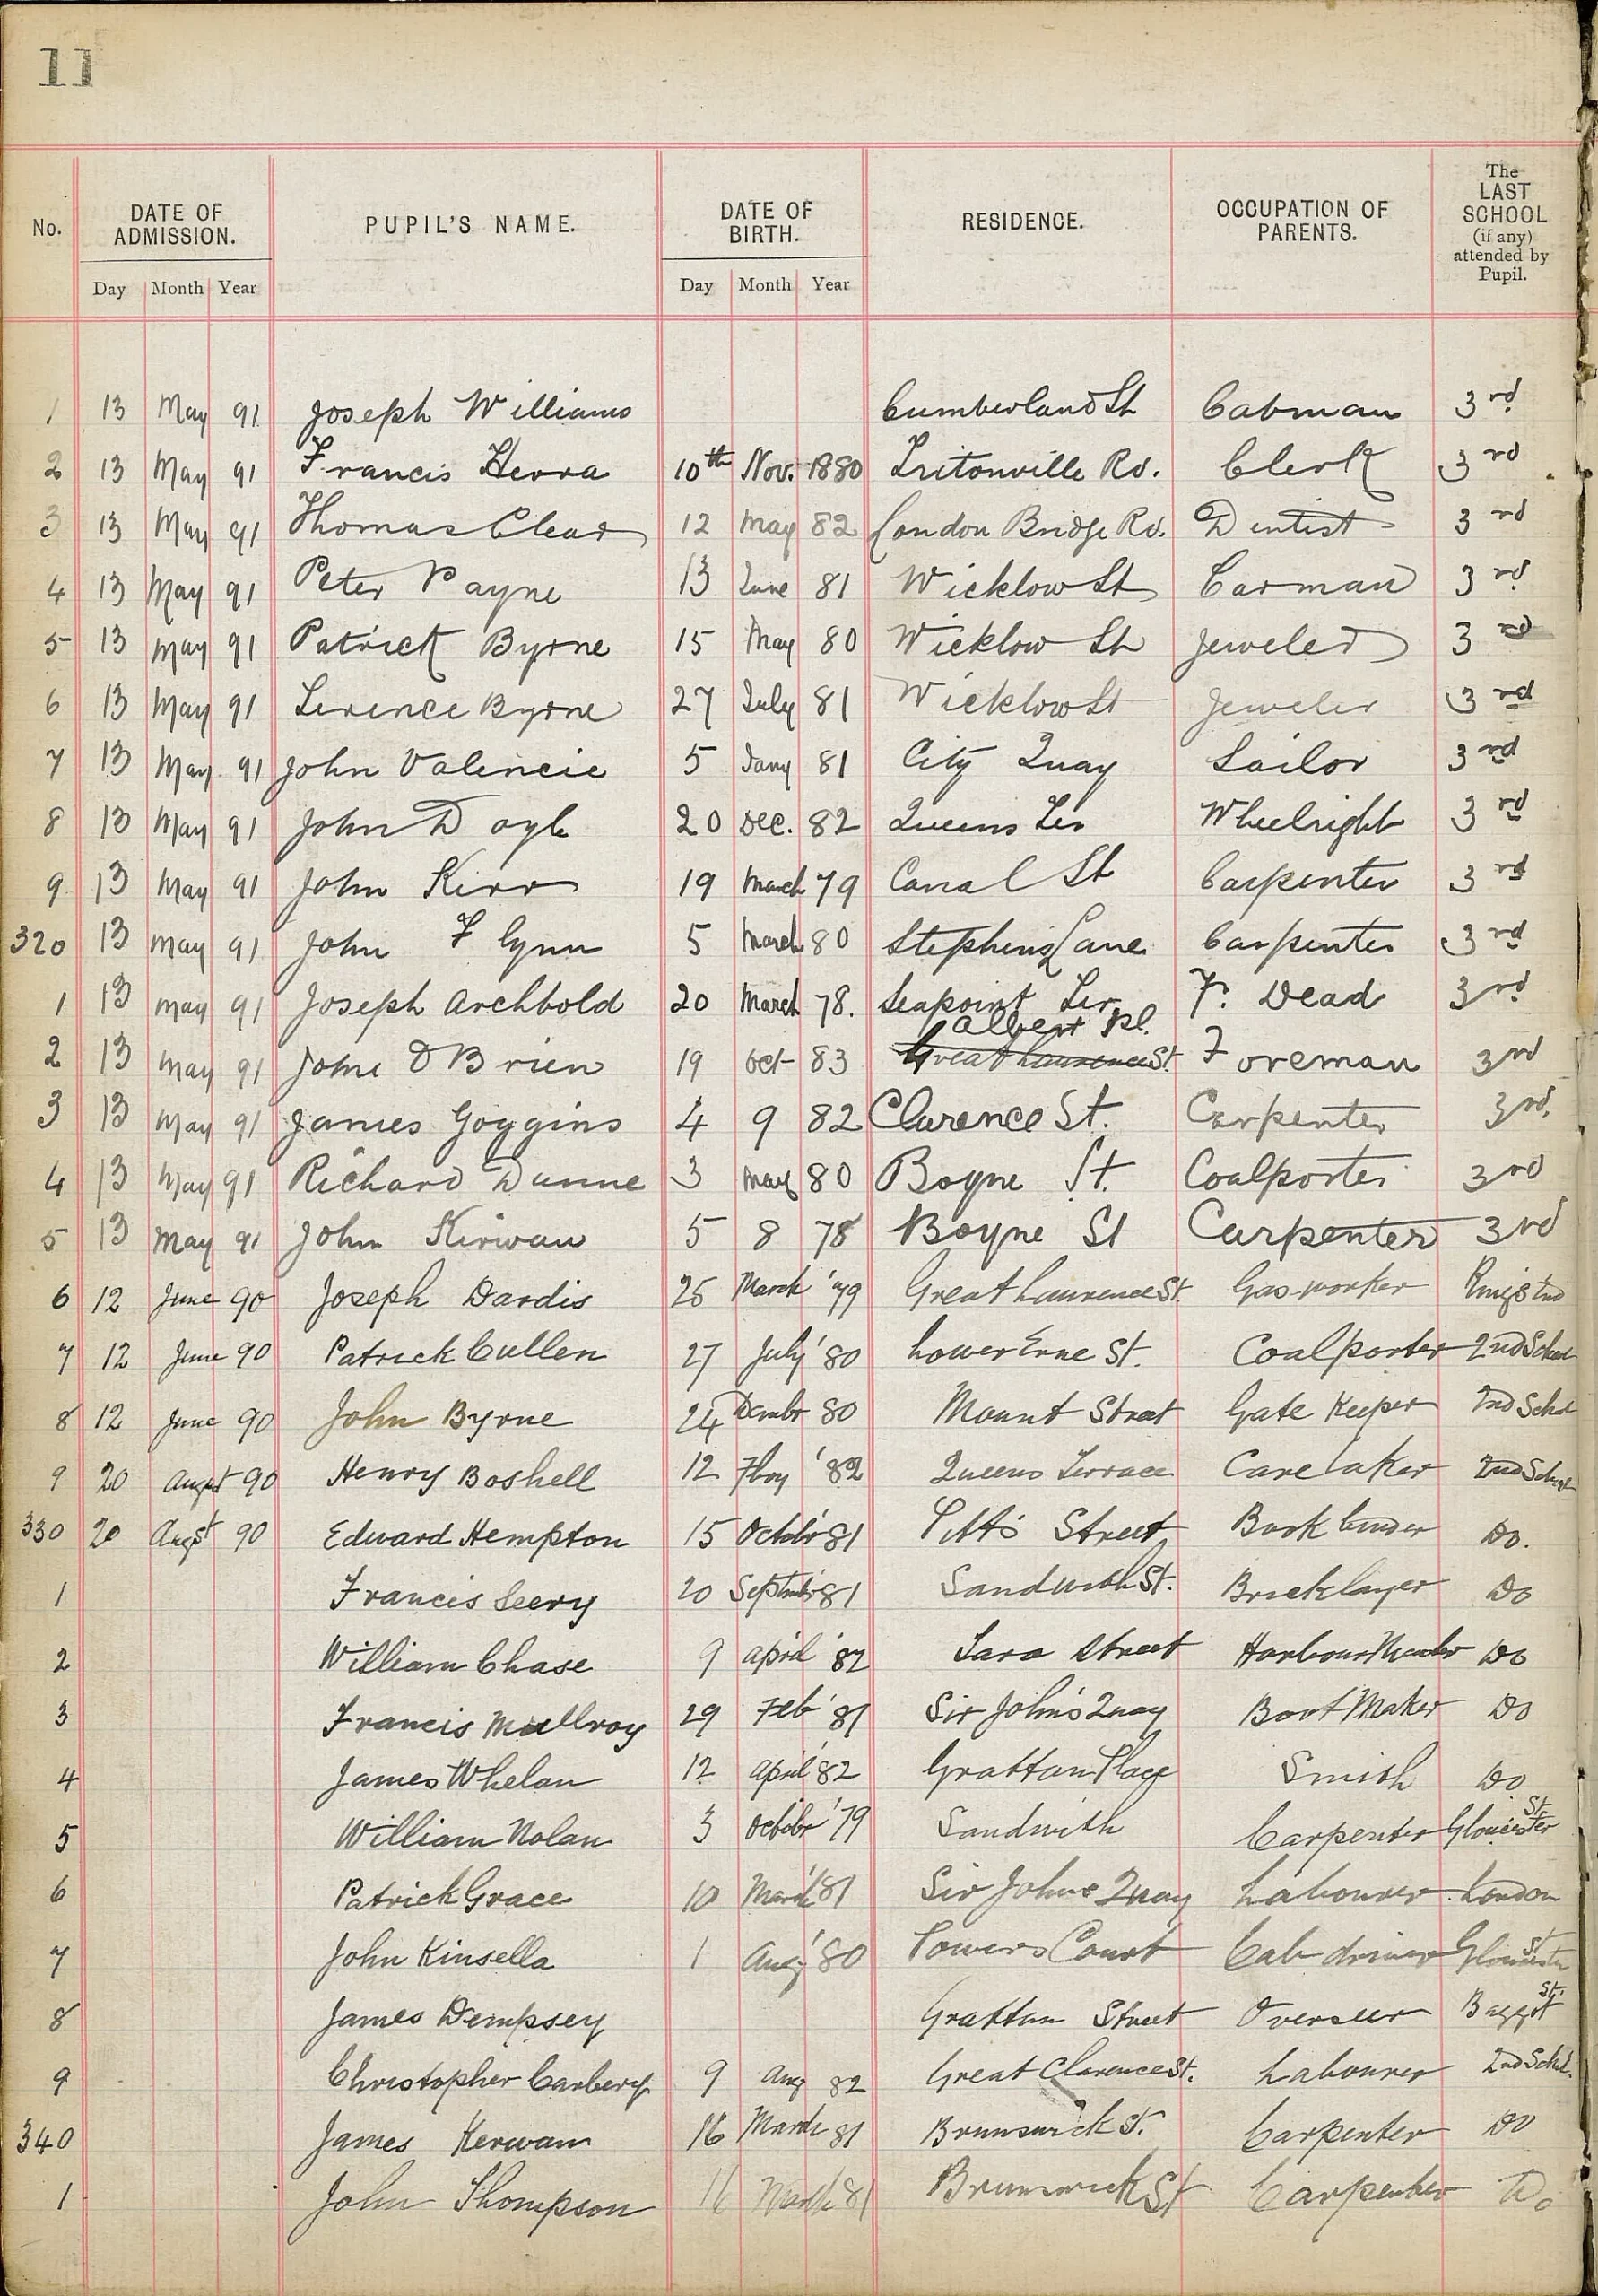 11
No. DATE OF ADMISSION. PUPIL'S NAME. DATE OF BIRTH. RESIDENCE. OCCUPATION OF PARENTS. The LAST SCHOOL (if any) attended by Pupil.
Day Month Year Day Month Year
1 13 May 91 Joseph Williams Cumberland St Cabman 3rd
2 13 May 91 Francis Kerra 10th Nov. 1880 Tritonville Rd. Clerk 3rd
3 13 May 91 Thomas Clear 12 May 82 London Bridge Rd. Dentist 3rd
4 13 May 91 Peter Payne 13 June 81 Wicklow St Carman 3rd
5 13 May 91 Patrick Byrne 15 May 80 Wicklow St Jeweler 3rd
6 13 May 91 Terence Byrne 27 July 81 Wicklow St Jeweler 3rd
7 13 May 91 John Valencie 5 Jany 81 City Quay Sailor 3rd
8 13 May 91 John Doyle 20 Dec. 82 Queens Ter Wheelright 3rd
9 13 May 91 John Kirr 19 March 79 Canal St Carpenter 3rd
320 13 May 91 John Flynn 5 March 80 Stephens Lane Carpenter 3rd
1 13 May 91 Joseph Archbold 20 March 78. Seapoint Ter F. Dead 3rd
Albert Pl.
2 13 May 91 John O Brien 19 Oct 83 Great Laurence St. Foreman 3rd
3 13 May 91 James Goggins 4 9 82 Clarence St. Carpenter 3rd.
4 13 May 91 Richard Dunne 3 May 80 Boyne St. Coalporter 3rd
5 13 May 91 John Kirwan 5 8 78 Boyne St Carpenter 3rd
6 12 June 90 Joseph Dardis 25 March '79 Great Laurence St. Gas-worker Rings End
7 12 June 90 Patrick Cullen 27 July '80 Lower Erne St. Coalporter 2nd School
8 12 June 90 John Byrne 24 Decmbr 80 Mount Street Gate Keeper 2nd Schol
9 20 August 90 Henry Boshell 12 Fbry '82 Queens Terrace Care taker 2nd School
330 20 Augst 90 Edward Hempton 15 Octobr '81 Pitts Street Book binder Do.
1 Francis Seery 20 Septmbr '81 Sandwith St. Bricklayer Do
2 William Chase 9 April '82 Tara Street Harbour Do
3 Francis McIlroy 29 Feb '81 Sir John's Quay Boot Maker Do
4 James Whelan 12 April '82 Grattan Place Smith Do
5 William Nolan 3 Octobr '79 Sandwith Carpenter Gloucester St.
6 Patrick Grace 10 March '81 Sir Johns Quay Labourer London
7 John Kinsella 1 Aug '80 Powers Court Cab driver Gloucester St
8 James Dempsey Grattan Street Overseer Baggot St.
9 Christopher Carbery 9 Aug 82 Great Clarence St. Labourer 2nd Schol.
340 James Kerwan 16 March 81 Brunswick St. Carpenter Do
1 John Thompson 16 March 81 Brunswick St Carpenter Do